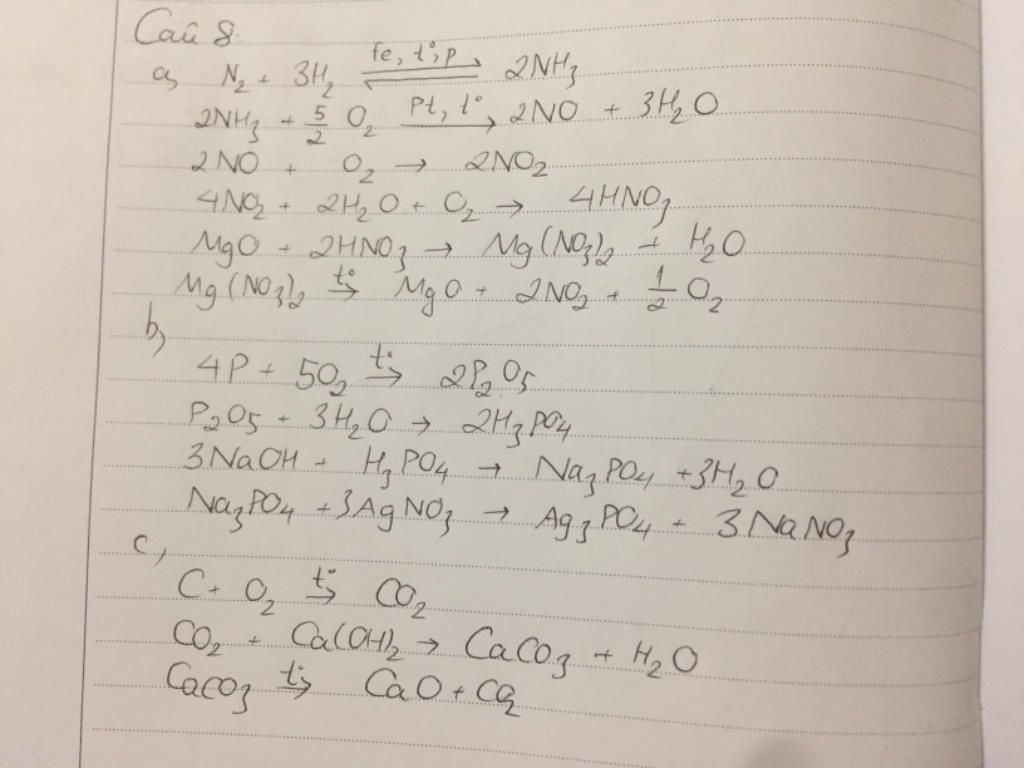 Câu 8:
a, N₂ + 3H₂ ⇌ (Fe, t°, p) 2NH₃
2NH₃ + 5/2 O₂ →(Pt, t°) 2NO + 3H₂O
2NO + O₂ → 2NO₂
4NO₂ + 2H₂O + O₂ → 4HNO₃
MgO + 2HNO₃ → Mg(NO₃)₂ + H₂O
Mg(NO₃)₂ →(t°) MgO + 2NO₂ + 1/2 O₂
b,
4P + 5O₂ →(t°) 2P₂O₅
P₂O₅ + 3H₂O → 2H₃PO₄
3NaOH + H₃PO₄ → Na₃PO₄ + 3H₂O
Na₃PO₄ + 3AgNO₃ → Ag₃PO₄ + 3NaNO₃
c,
C + O₂ →(t°) CO₂
CO₂ + Ca(OH)₂ → CaCO₃ + H₂O
CaCO₃ →(t°) CaO + CO₂